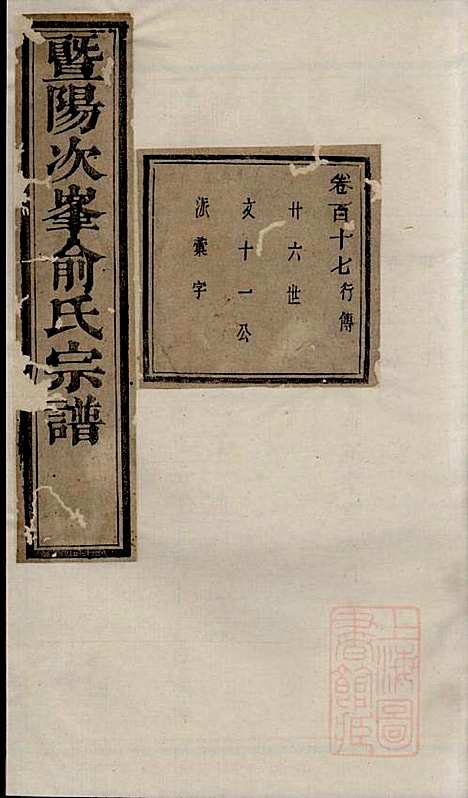 暨陽次峯俞氏宗譜
卷百十七行傳
廿六世
亥十一公
派彙字
上海圖
書館藏